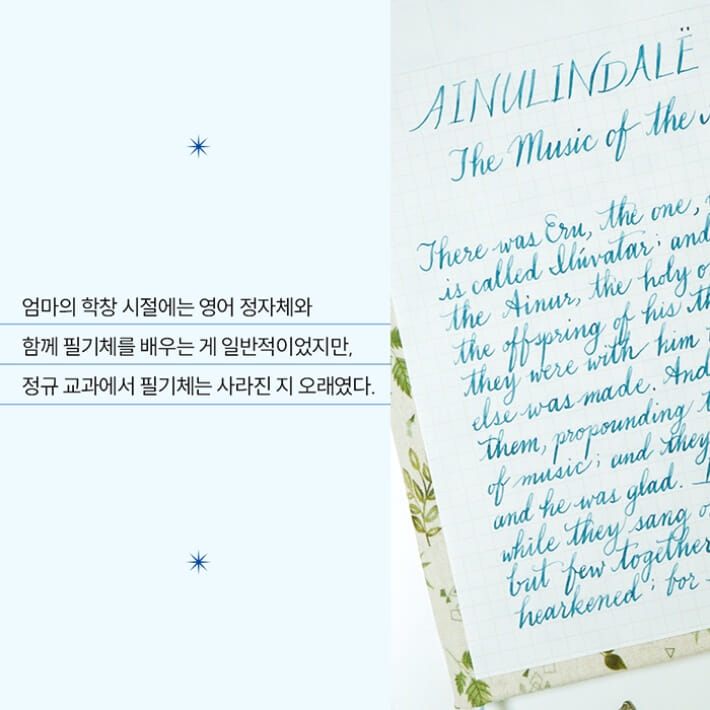 엄마의 학창 시절에는 영어 정자체와
함께 필기체를 배우는 게 일반적이었지만,
정규 교과에서 필기체는 사라진 지 오래였다.
AINULINDALË
The Music of the
There was Eru, the one,
is called Ilúvatar; and
the Ainur, the holy o
the offspring of his th
they were with him
else was made. And
them, propounding t
of music; and they
and he was glad.
while they sang o
but few together
hearkened; for